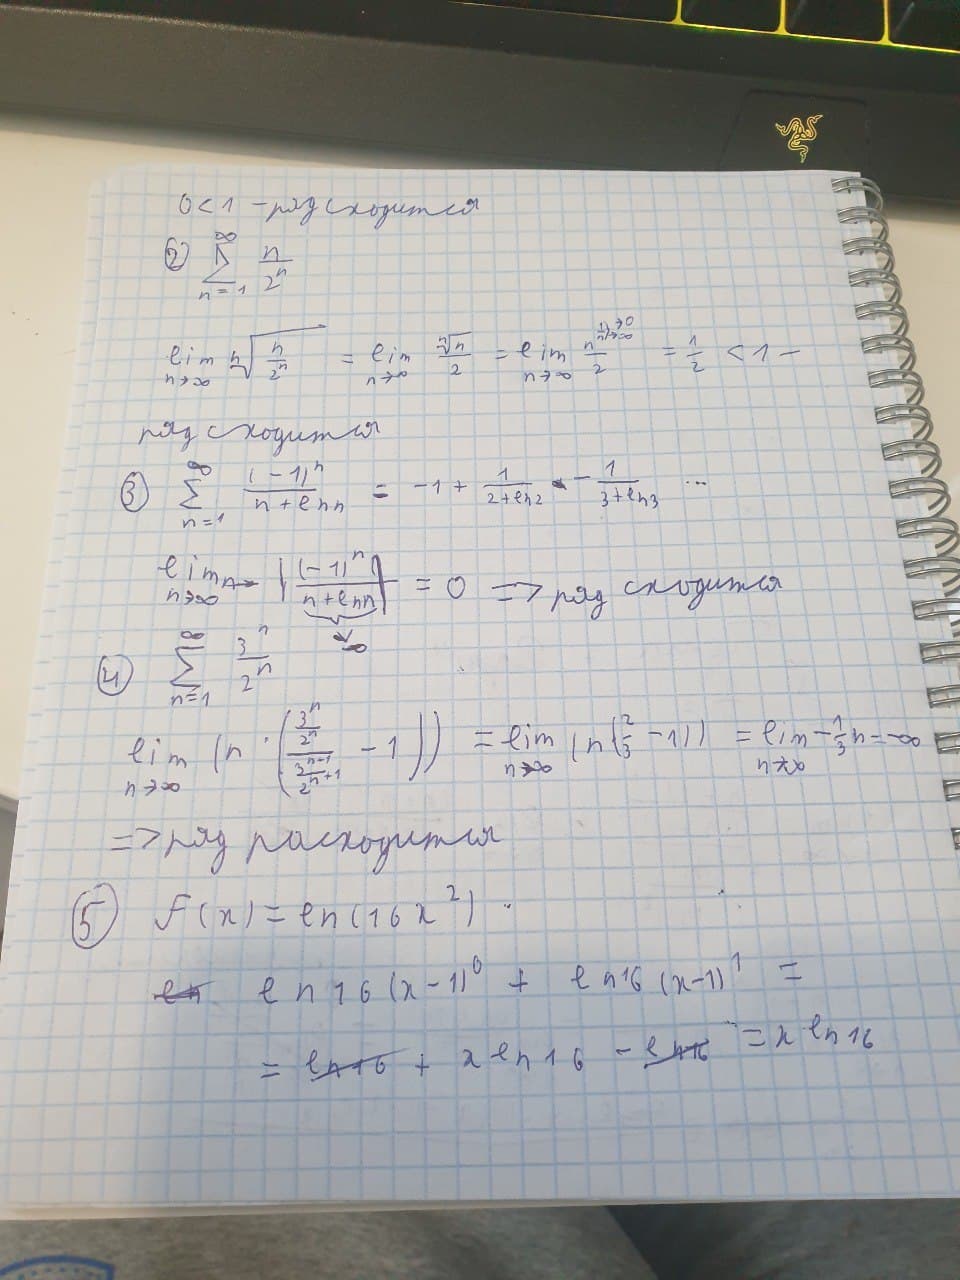 0 < 1 - ряд сходится
② ∑_{n=1}^{∞} n/2^n
lim_{n→∞} ⁿ√(n/2^n) = lim_{n→∞} ⁿ√n/2 = lim_{n→∞} n^{1/n}/2 = 1/2 < 1 -
ряд сходится
③ ∑_{n=1}^{∞} (-1)^n/(n+ln n) = -1 + 1/(2+ln2) - 1/(3+ln3) ...
lim_{n→∞} |(-1)^n/(n+ln n)| = 0 => ряд сходится
④ ∑_{n=1}^{∞} 3^n/2^n
lim_{n→∞} (n · ((3^n/2^n)/(3^{n+1}/2^{n+1}) - 1)) = lim_{n→∞} (n(2/3 - 1)) = lim_{n→∞} -1/3 n = -∞
=> ряд расходится
⑤ F(x) = ln(16x^2)
ln16(x-1)^0 + ln16(x-1)^1 =
= ln16 + x ln16 - ln16 = x ln16